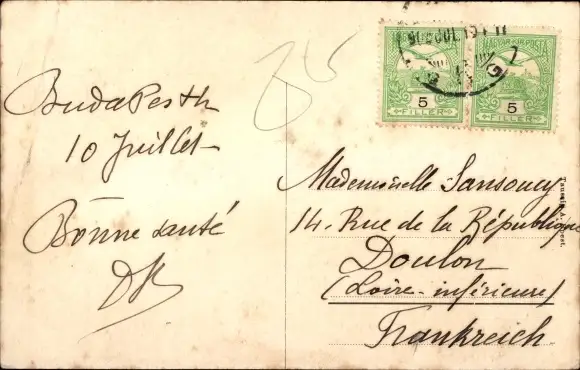 BudaPesth
10 Juillet
Bonne santé
MAGYAR KIR. POSTA
5
FILLER
5
FILLER
Mademoiselle Sansoucy
14. Rue de la République
Doulon
(Loire-inférieure)
Frankreich